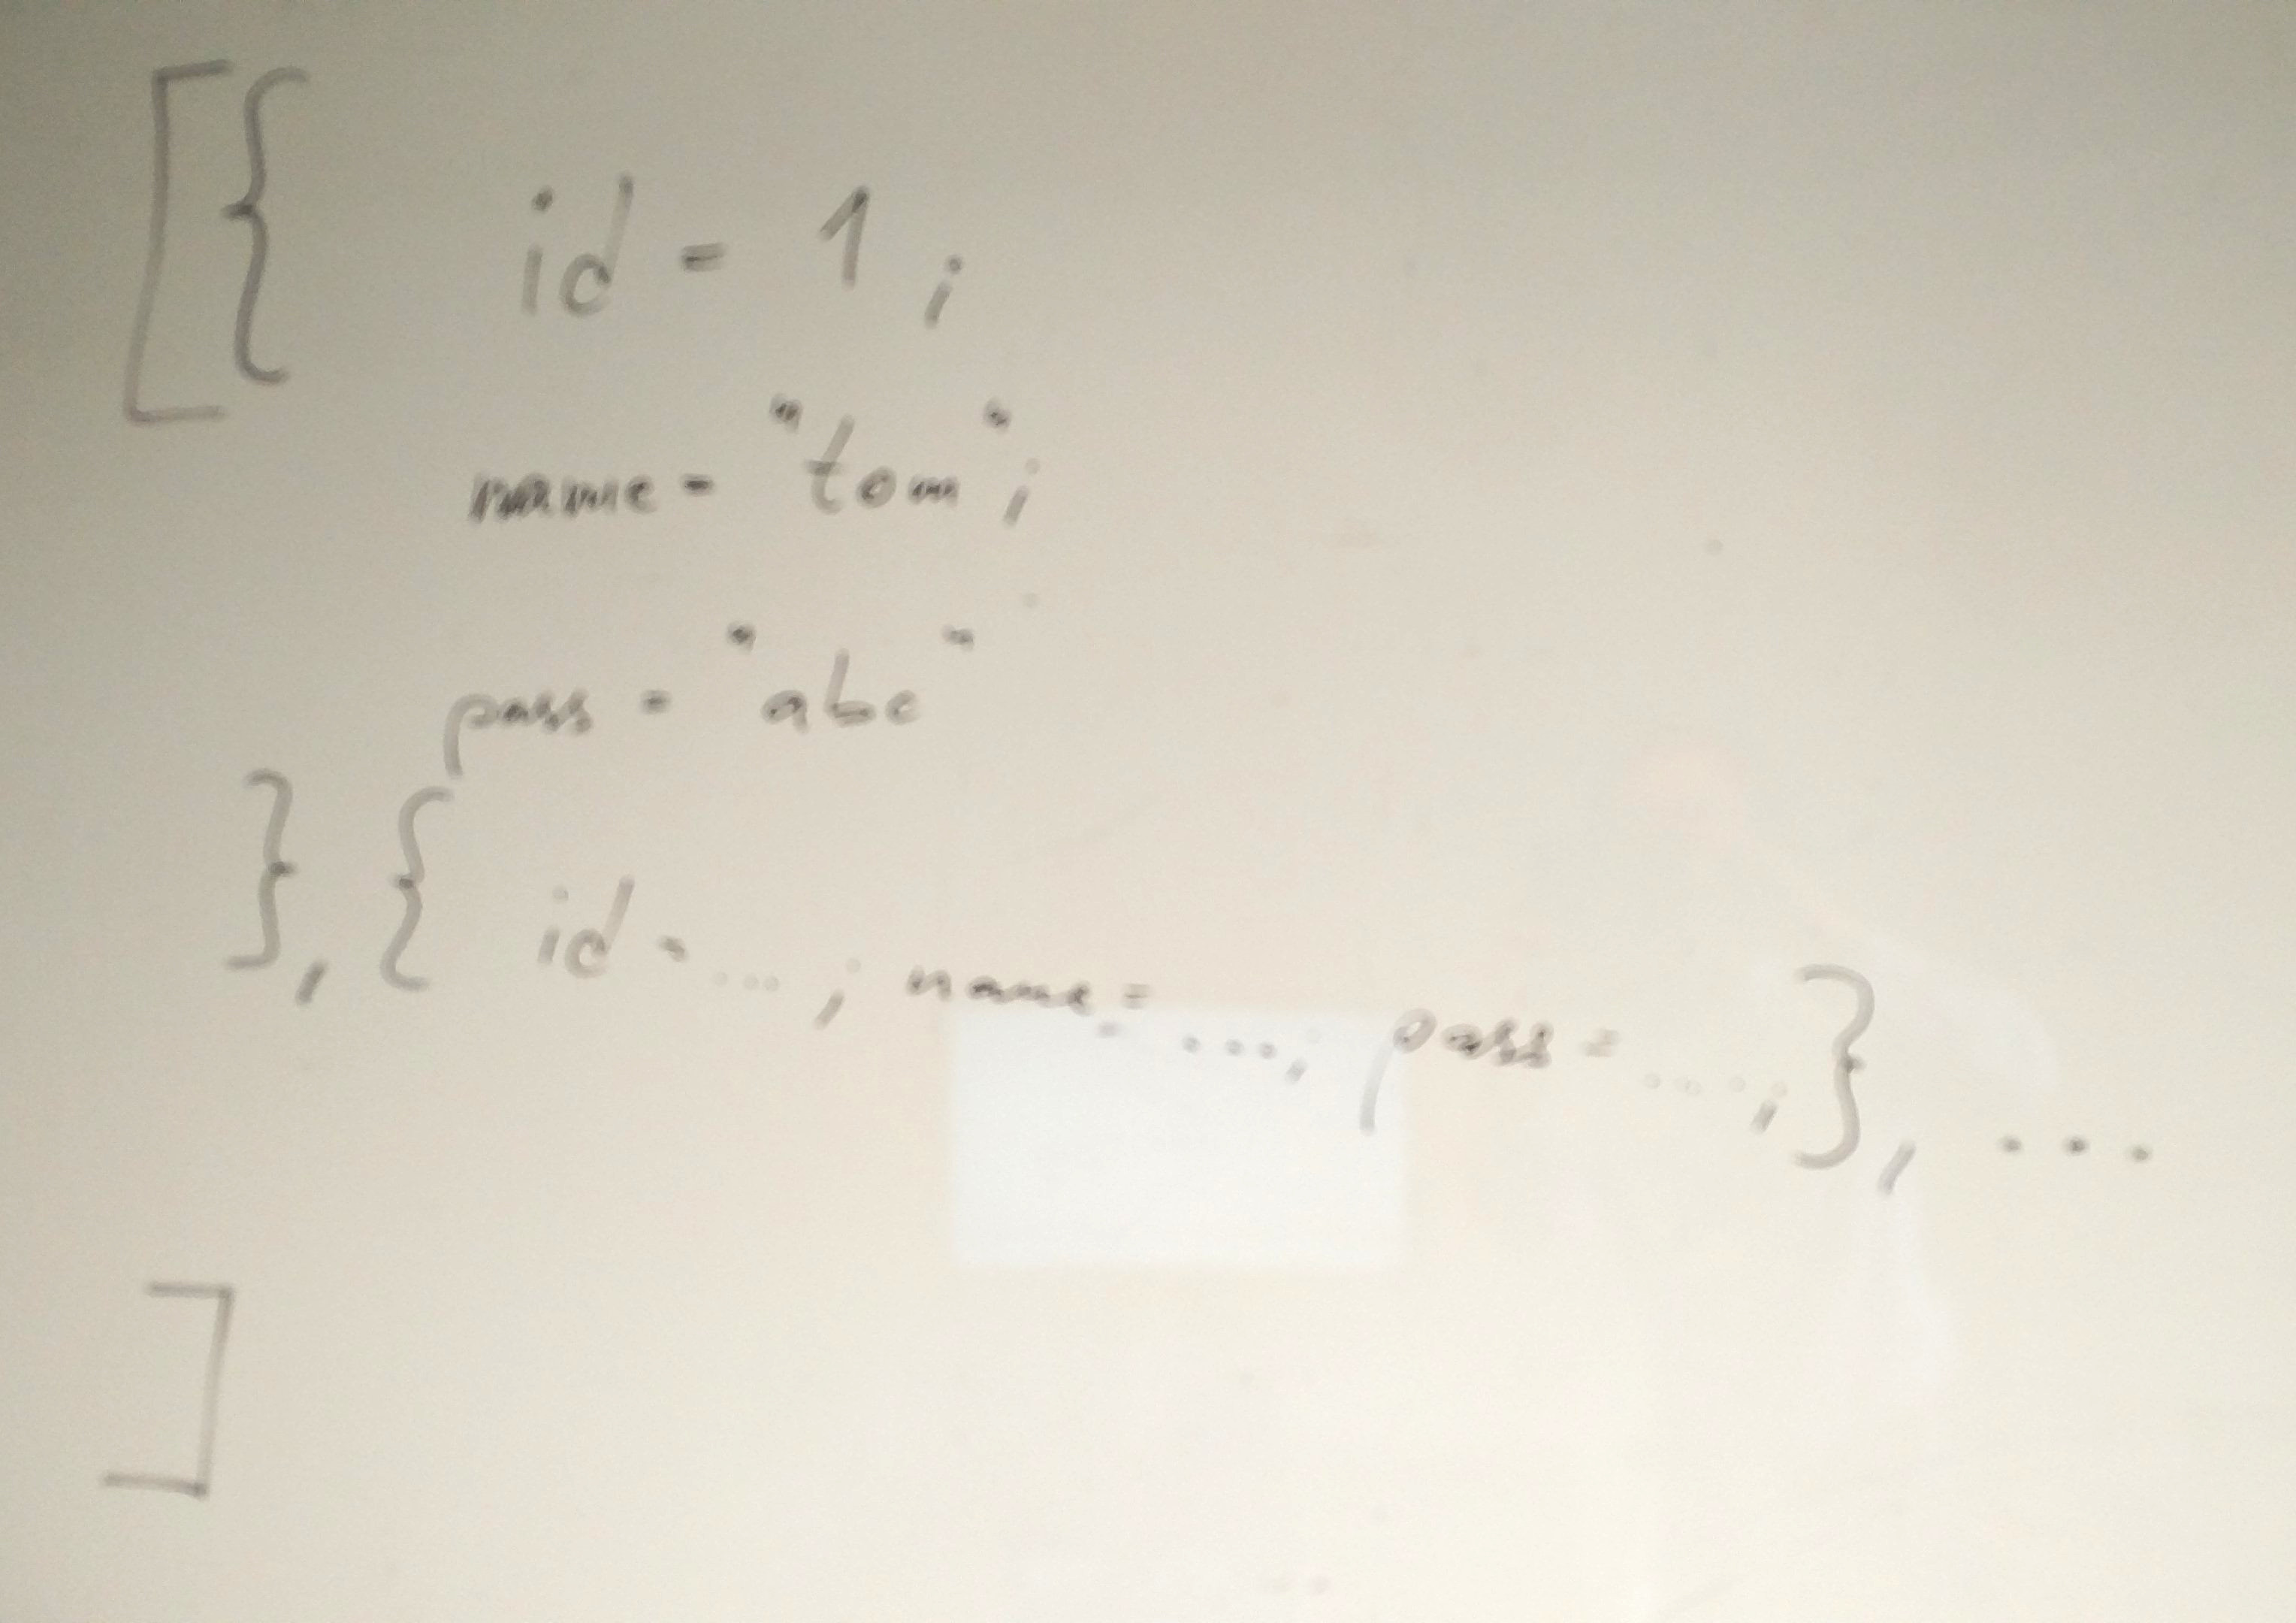 [{ id = 1;
name = "tom";
pass = "abc"
},{ id = ...; name = ...; pass = ...;}, ...
]